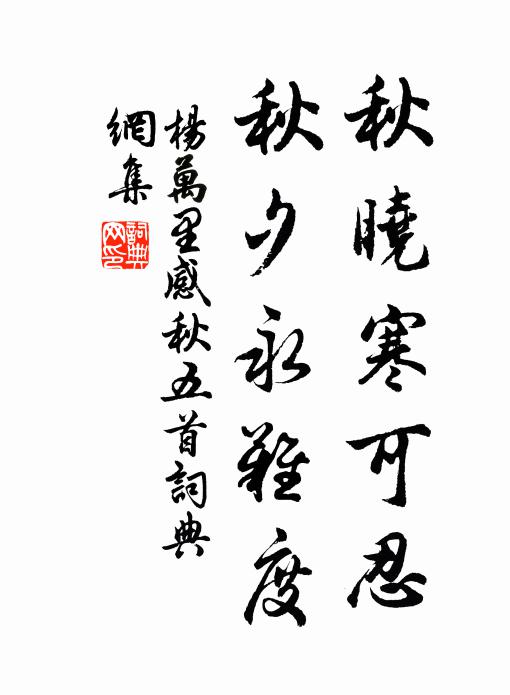 秋曉寒可忍
秋夕永難度
楊萬里感秋五首詞典
網集
詞典
网印